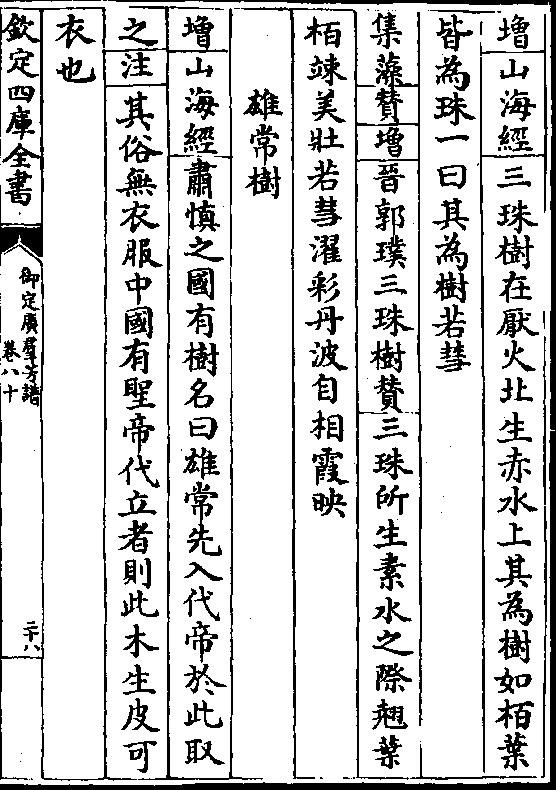 增山海經三珠樹在厭火北生赤水上其為樹如栢葉
皆為珠一曰其為樹若彗
集藻贊增晉郭璞三珠樹贊三珠所生素水之際翹葉
栢竦美壯若彗濯彩丹波自相霞映
雄常樹
增山海經肅慎之國有樹名曰雄常先入代帝於此取
之注其俗無衣服中國有聖帝代立者則此木生皮可
衣也
欽定四庫全書
御定廣羣芳譜
卷八十
二十八